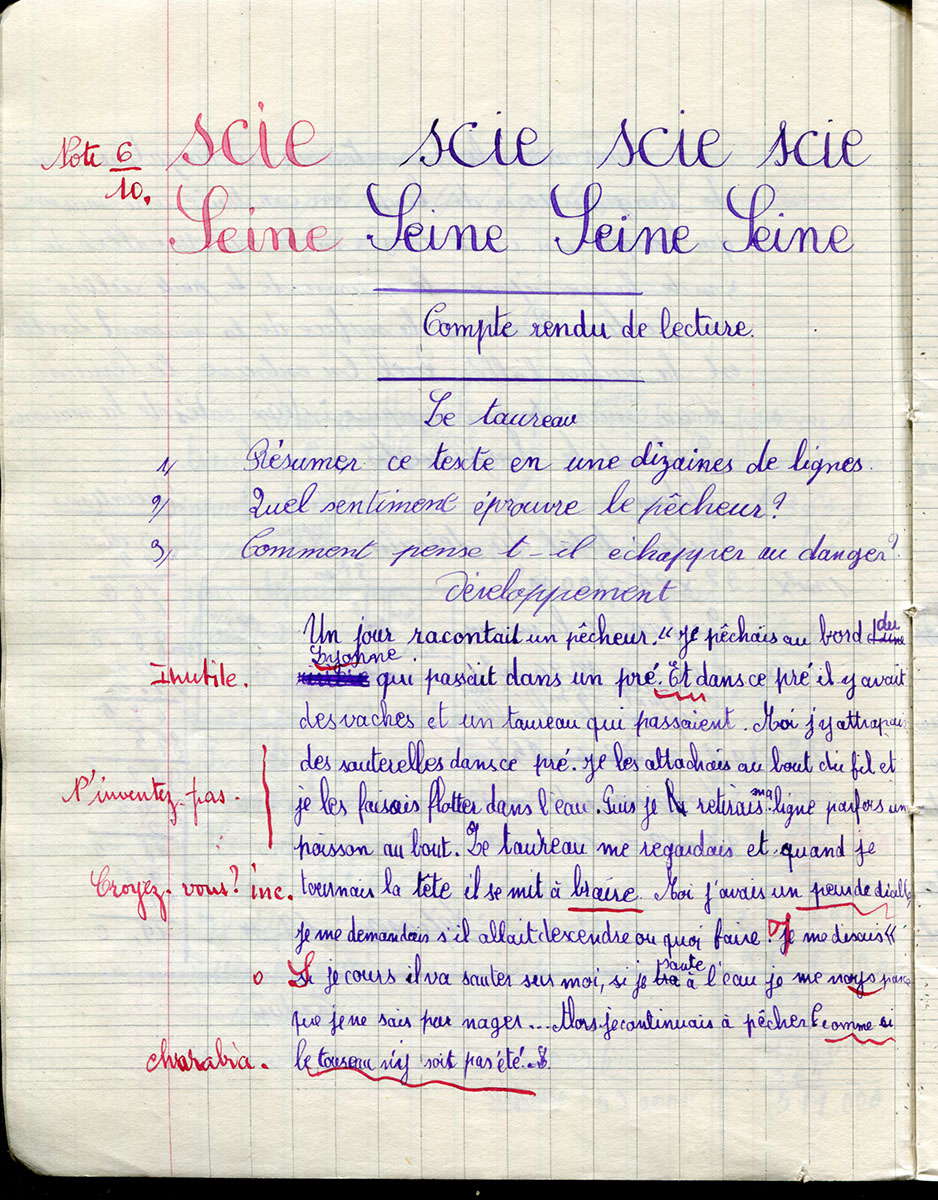 Note 6/10. scie scie scie scie
Seine Seine Seine Seine
Compte rendu de lecture.
Le taureau
1/ Résumer ce texte en une dizaines de lignes.
2/ Quel sentiment éprouve le pêcheur?
3/ Comment pense t-il échapper au danger?
Développement
Un jour racontait un pêcheur. « Je pêchais au bord du
Lyonne.
Inutile. qui passait dans un pré. Et dans ce pré il y avait
des vaches et un taureau qui passaient. Moi j'y attrapais
des sauterelles dans ce pré. Je les attachais au bout du fil et
N'inventez pas. je les faisais flotter dans l'eau. Puis je retirais ma ligne parfois un
poisson au bout. Le taureau me regardais et quand je
Croyez-vous? inc. tournais la tête il se mit à braire. Moi j'avais un peur de diable
Je me demandais s'il allait descendre ou quoi faire? Je me disous «
o Si je cours il va sauter sur moi, si je saute à l'eau je me noys parce
que je ne sais pas nager... Alors je continuais à pêcher comme si
charabia. le taureau n'y soit pas été.